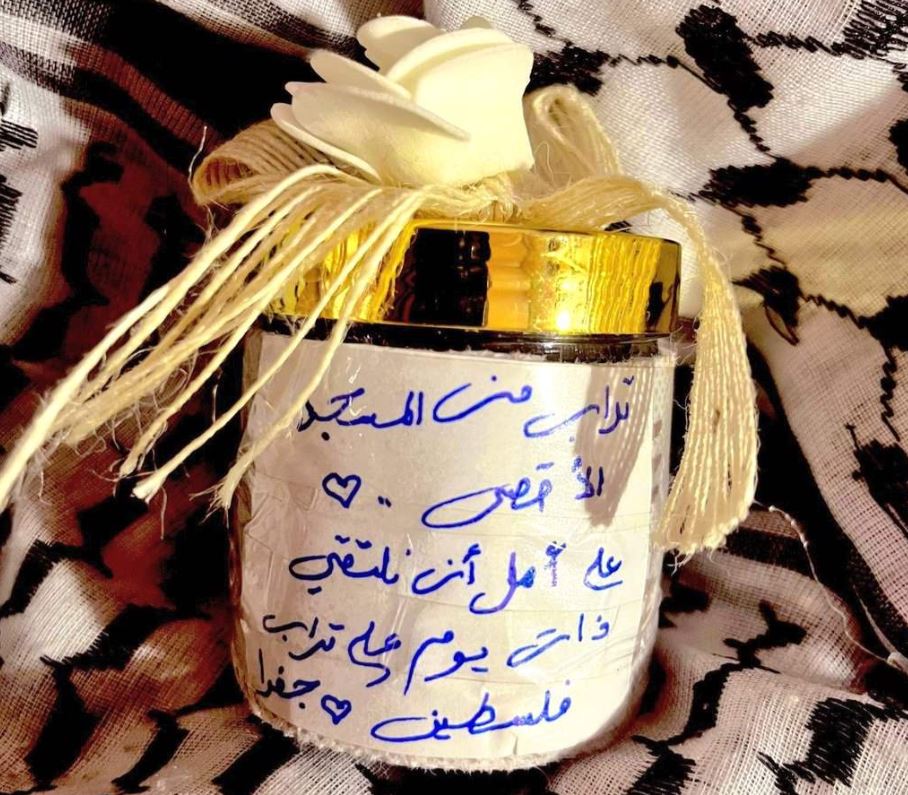 تراب من المسجد
الأقصى .. ♡
على أمل أن نلتقي
ذات يوم على تراب
فلسطين ♡ جفرا